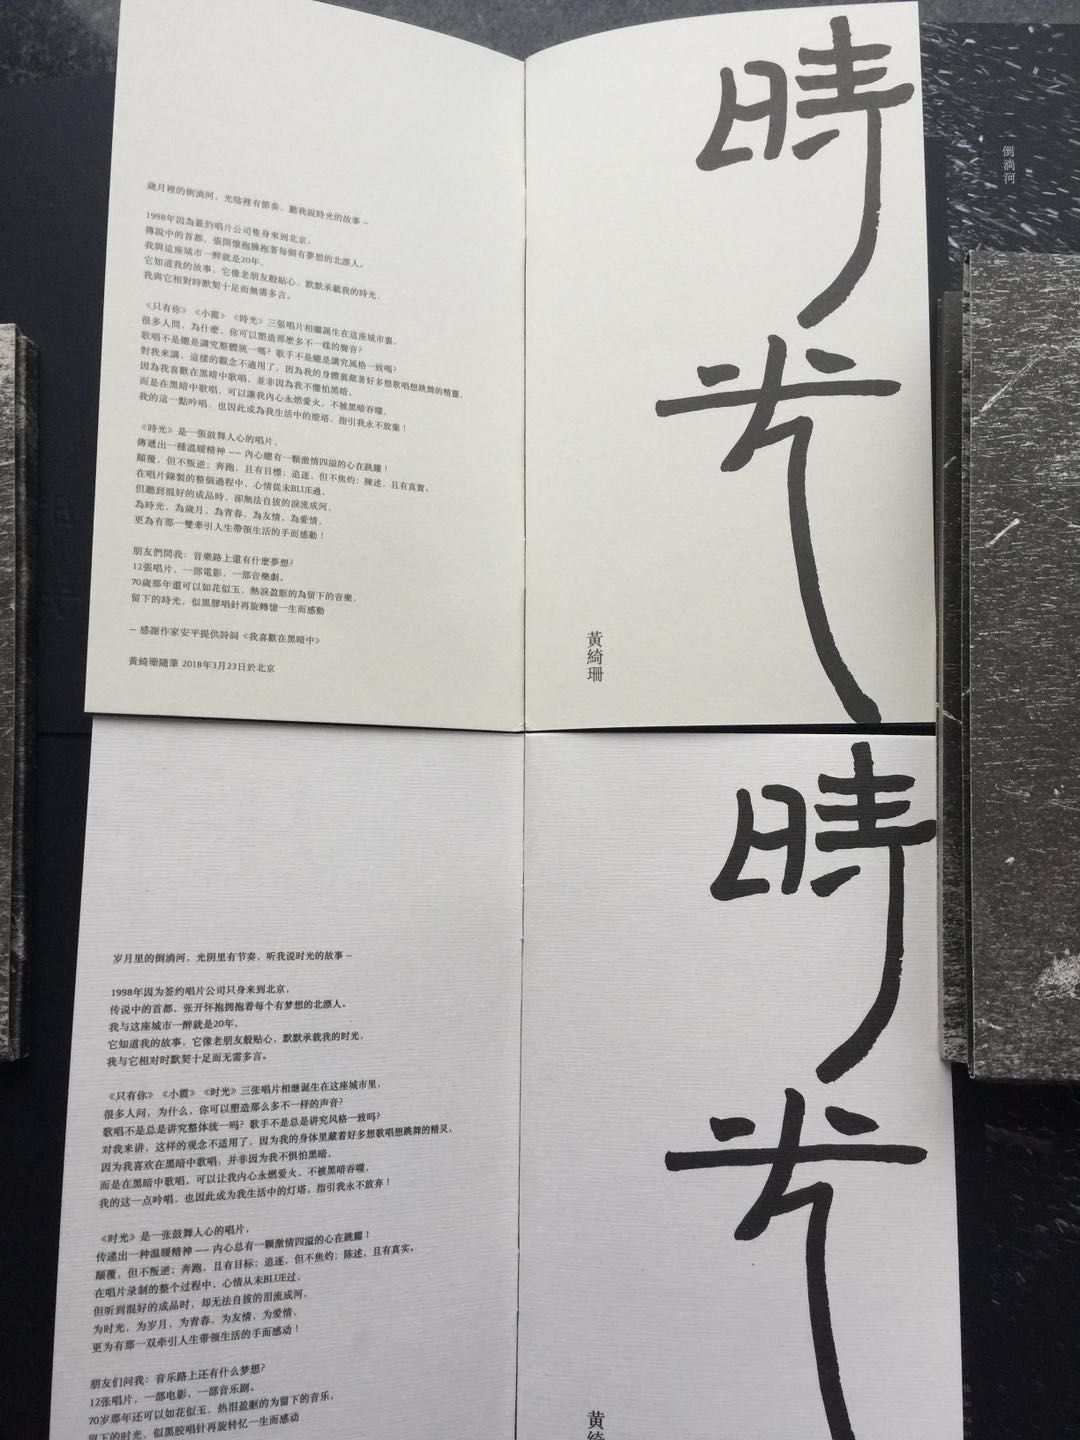 歲月裡的倒淌河，光陰裡有節奏，聽我說時光的故事 –
1998年因為簽約唱片公司隻身來到北京，
傳說中的首都，張開懷抱擁抱著每個有夢想的北漂人。
我與這座城市一醉就是20年，
它知道我的故事，它像老朋友般貼心，默默承載我的時光，
我與它相對時默契十足而無需多言。
《只有你》《小霞》《時光》三張唱片相繼誕生在這座城市裏，
很多人問，為什麼，你可以塑造那麼多不一樣的聲音？
歌唱不是總是講究整體統一嗎？歌手不是總是講究風格一致嗎？
對我來講，這樣的觀念不適用了，因為我的身體裏藏著好多想歌唱想跳舞的精靈，
因為我喜歡在黑暗中歌唱，並非因為我不懼怕黑暗，
而是在黑暗中歌唱，可以讓我內心永燃愛火，不被黑暗吞噬，
我的這一點吟唱，也因此成為我生活中的燈塔，指引我永不放棄！
《時光》是一張鼓舞人心的唱片，
傳遞出一種溫暖精神 —— 內心總有一顆激情四溢的心在跳躍！
顛覆，但不叛逆；奔跑，且有目標；追逐，但不焦灼；陳述，且有真實。
在唱片錄製的整個過程中，心情從未BLUE過，
但聽到混好的成品時，卻無法自拔的淚流成河，
為時光，為歲月，為青春，為友情，為愛情，
更為有那一雙牽引人生帶領生活的手而感動！
朋友們問我：音樂路上還有什麼夢想？
12張唱片，一部電影，一部音樂劇。
70歲那年還可以如花似玉，熱淚盈眶的為留下的音樂，
留下的時光，似黑膠唱針再旋轉憶一生而感動
– 感謝作家安平提供詩詞《我喜歡在黑暗中》
黃綺珊隨筆 2018年3月23日於北京
時光
黃綺珊
倒淌河
岁月里的倒淌河，光阴里有节奏，听我说时光的故事 –
1998年因为签约唱片公司只身来到北京，
传说中的首都，张开怀抱拥抱着每个有梦想的北漂人。
我与这座城市一醉就是20年，
它知道我的故事，它像老朋友般贴心，默默承载我的时光，
我与它相对时默契十足而无需多言。
《只有你》《小霞》《时光》三张唱片相继诞生在这座城市里，
很多人问，为什么，你可以塑造那么多不一样的声音？
歌唱不是总是讲究整体统一吗？歌手不是总是讲究风格一致吗？
对我来讲，这样的观念不适用了，因为我的身体里藏着好多想歌唱想跳舞的精灵，
因为我喜欢在黑暗中歌唱，并非因为我不惧怕黑暗，
而是在黑暗中歌唱，可以让我内心永燃爱火，不被黑暗吞噬，
我的这一点吟唱，也因此成为我生活中的灯塔，指引我永不放弃！
《时光》是一张鼓舞人心的唱片，
传递出一种温暖精神 —— 内心总有一颗激情四溢的心在跳耀！
颠覆，但不叛逆；奔跑，且有目标；追逐，但不焦灼；陈述，且有真实。
在唱片录制的整个过程中，心情从未BLUE过，
但听到混好的成品时，却无法自拔的泪流成河，
为时光，为岁月，为青春，为友情，为爱情，
更为有那一双牵引人生带领生活的手而感动！
朋友们问我：音乐路上还有什么梦想？
12张唱片，一部电影，一部音乐剧。
70岁那年还可以如花似玉，热泪盈眶的为留下的音乐，
留下的时光，似黑胶唱针再旋转忆一生而感动
時光
黃綺